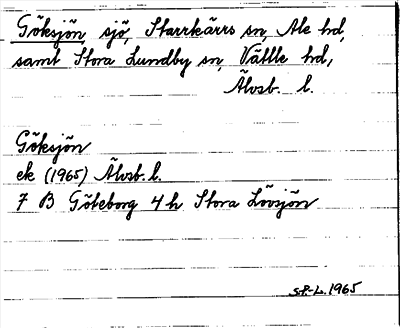 Göksjön, sjö, Starrkärrs sn, Ale hd,
samt Stora Lundby sn, Vättle hd,
Älvsb. l.
Göksjön
ek (1965) Älvsb. l.
7 B Göteborg 4 h Stora Lövsjön
S.P.-L. 1965